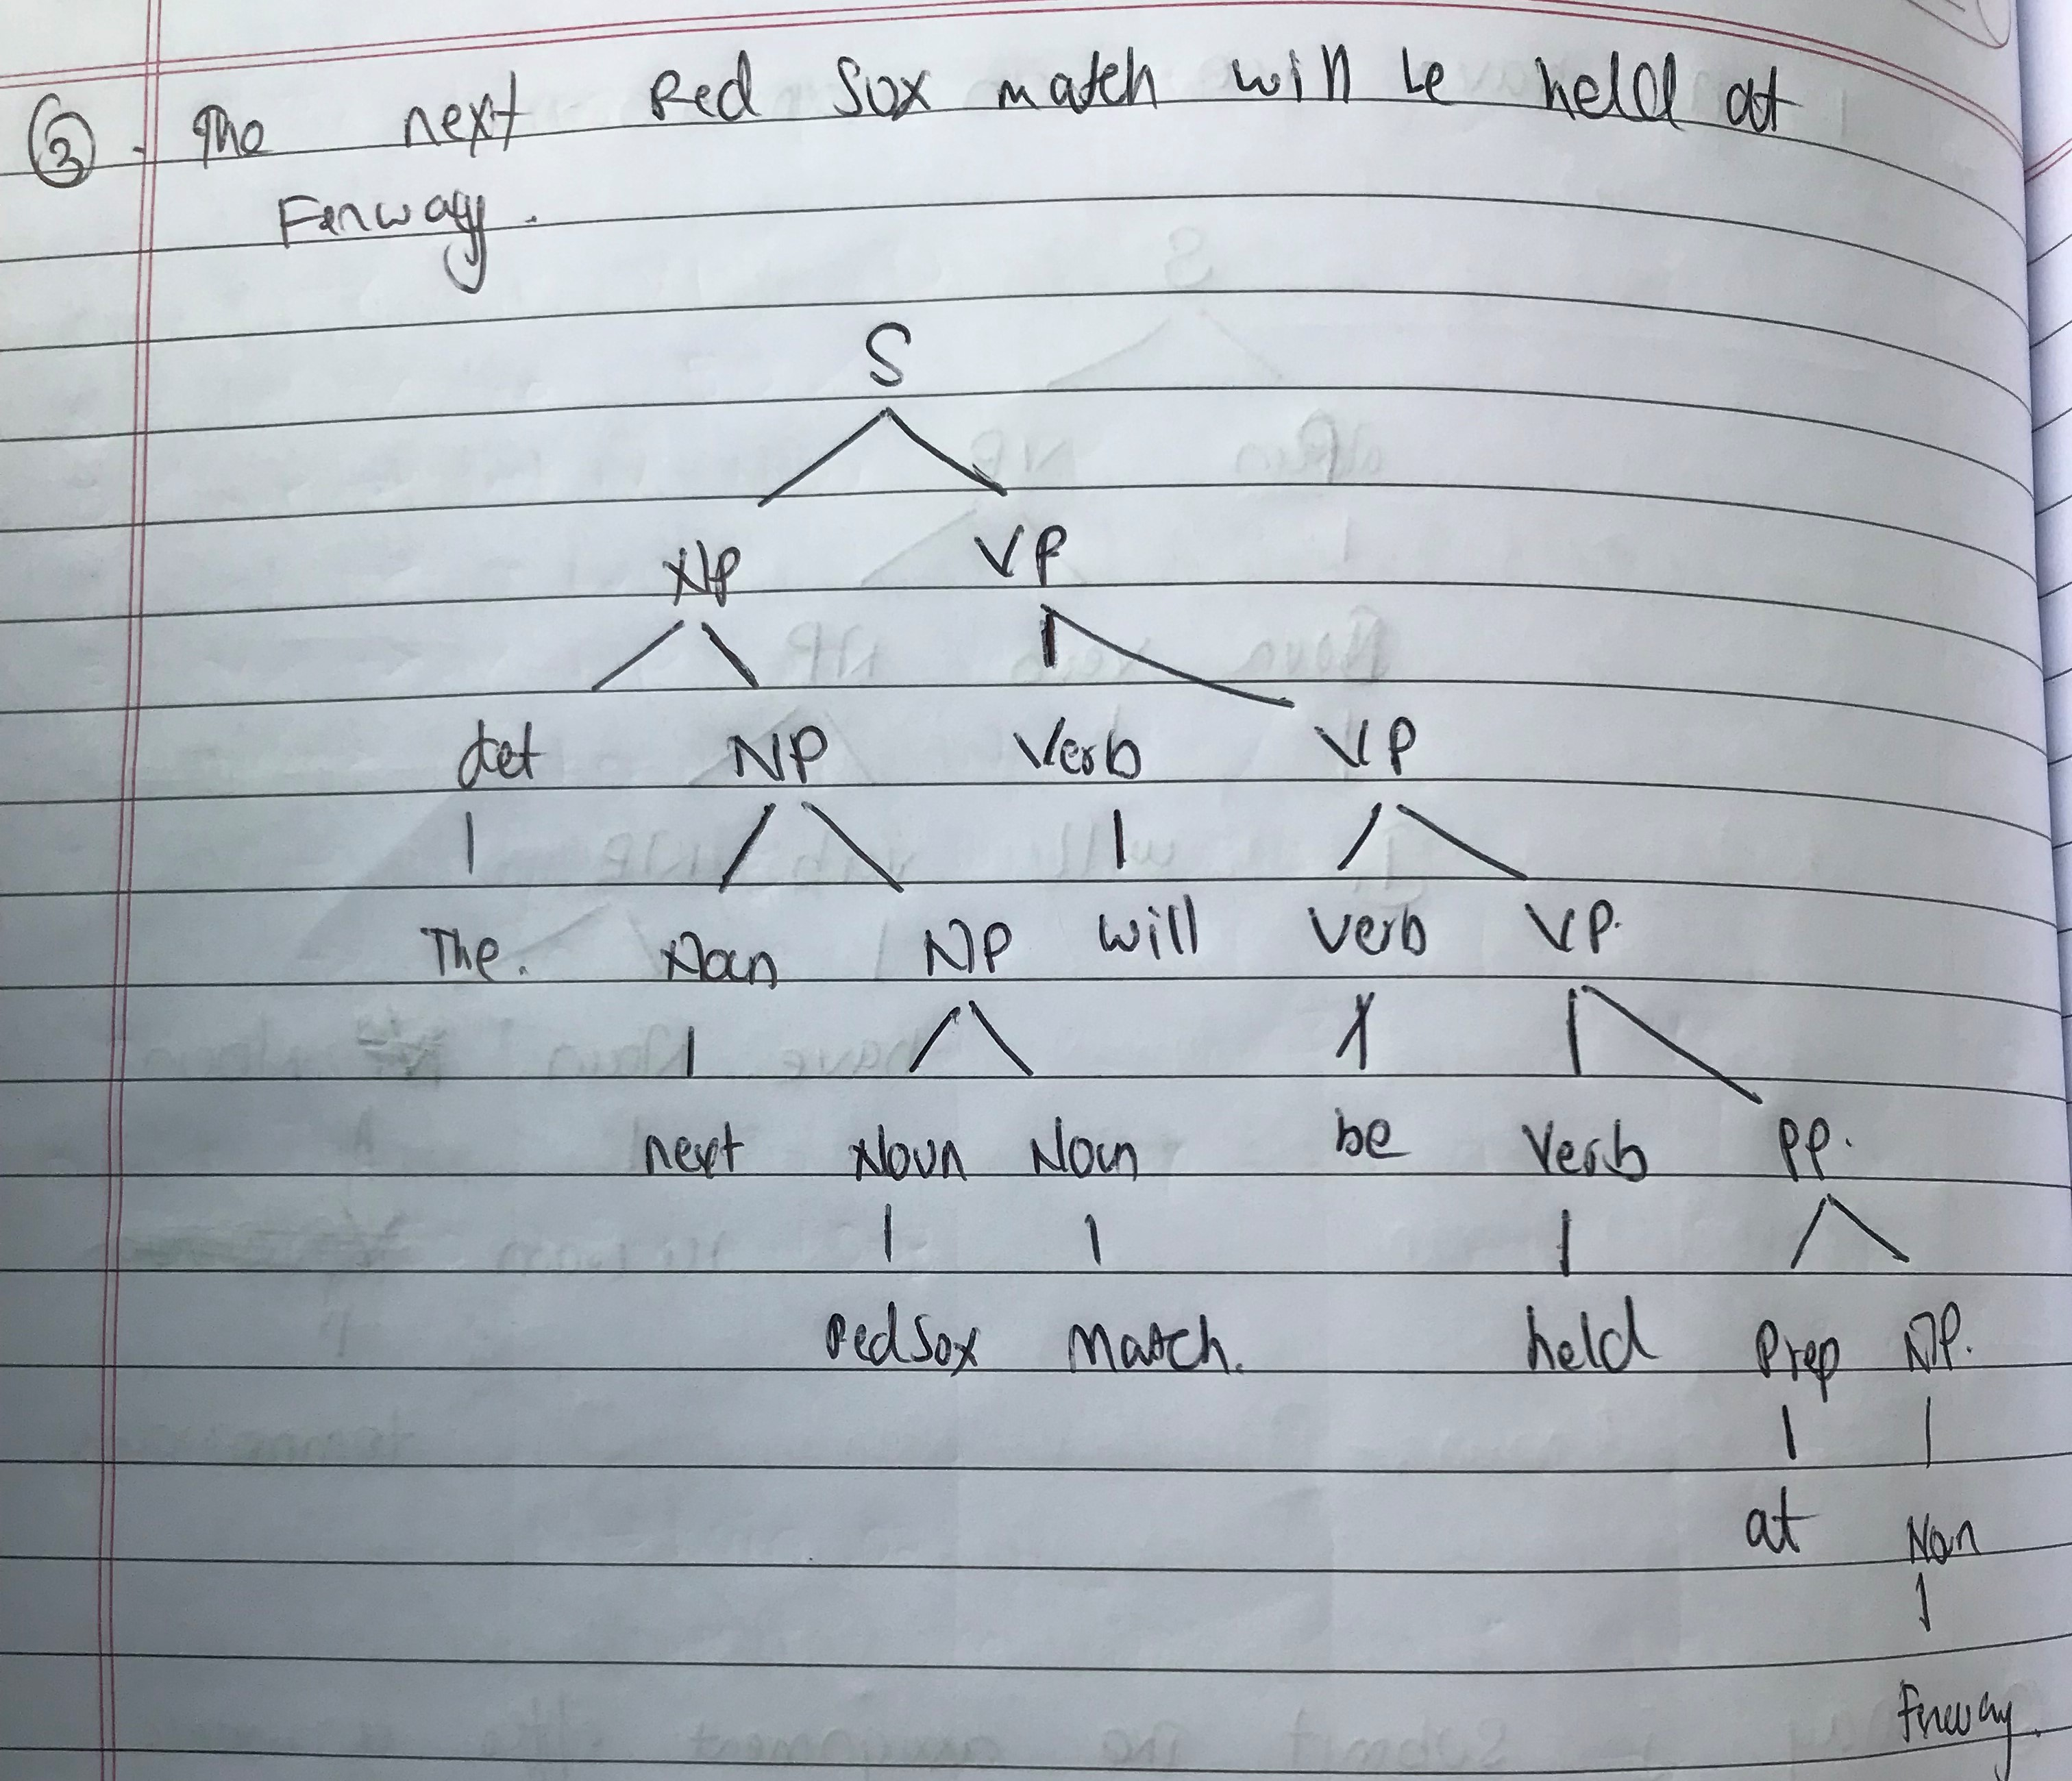 3. The next Red Sox match will be held at
Fenway.
S
NP VP
det NP Verb VP
The. Noun NP will Verb VP.
next Noun Noun be Verb PP.
Red Sox Match. held Prep NP.
at Noun
Fenway.